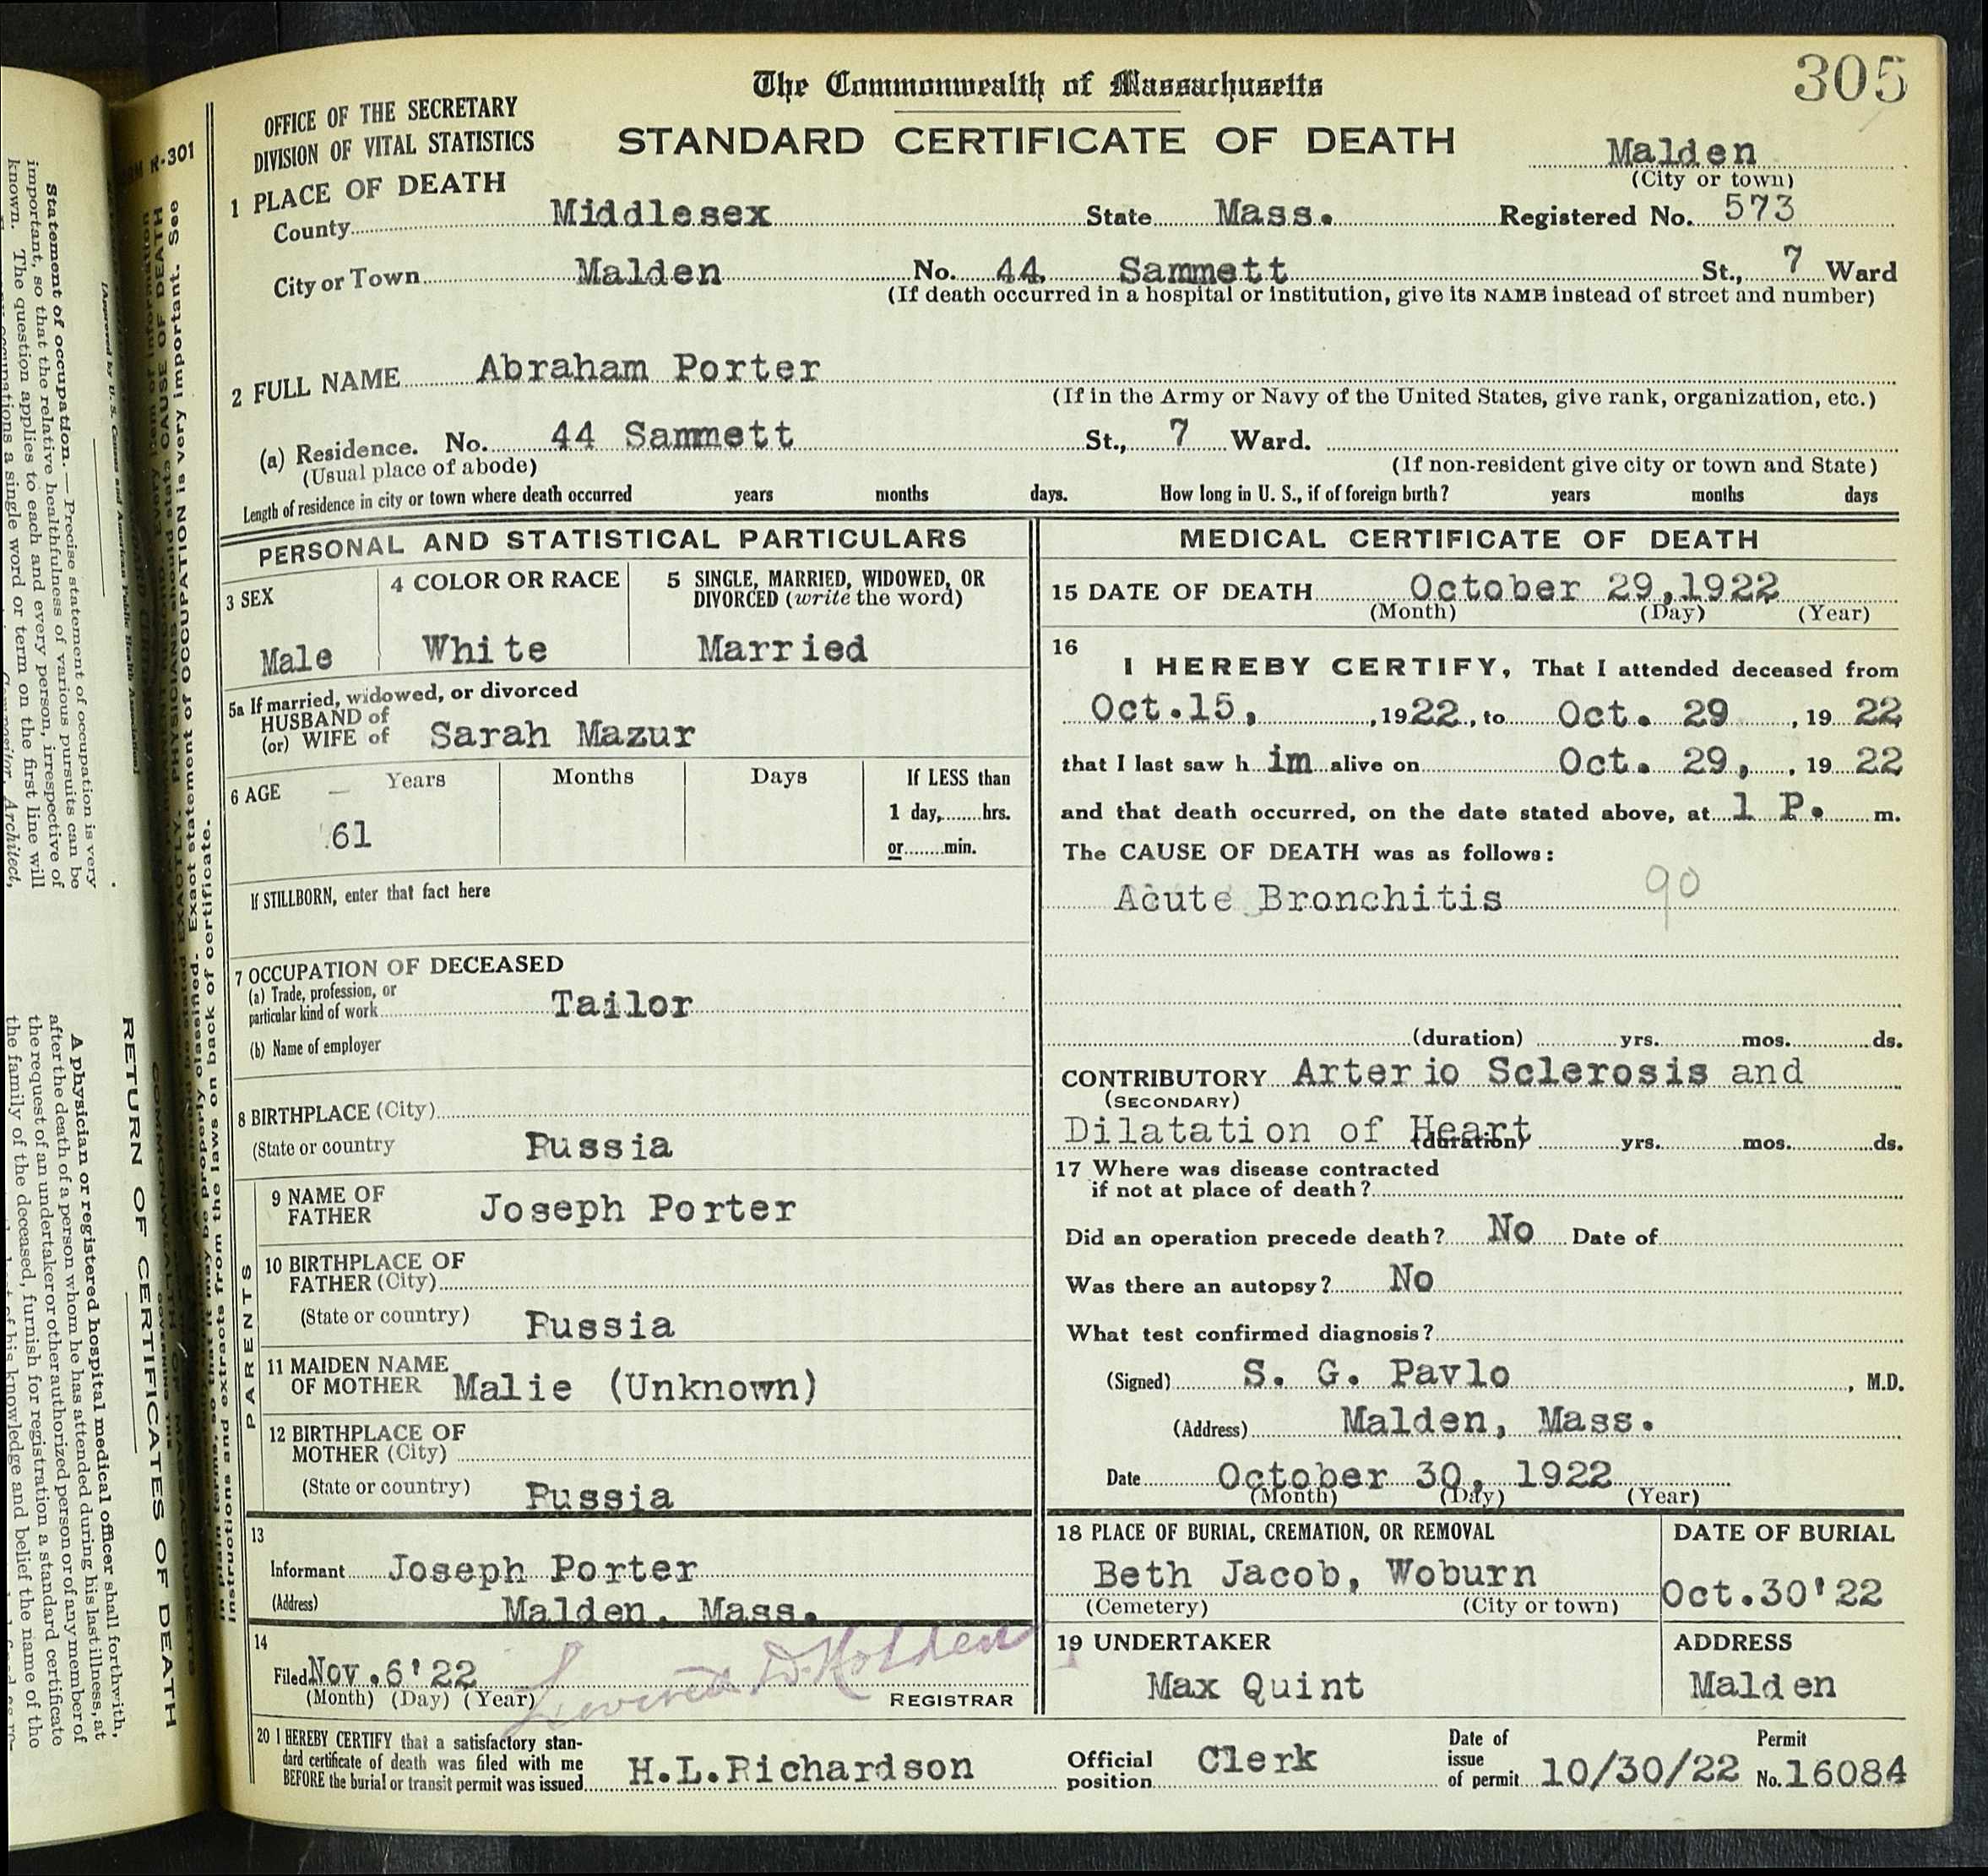 305
The Commonwealth of Massachusetts
OFFICE OF THE SECRETARY
DIVISION OF VITAL STATISTICS
STANDARD CERTIFICATE OF DEATH
Malden
(City or town)
1 PLACE OF DEATH
County Middlesex State Mass. Registered No. 573
City or Town Malden No. 44 Sammett St., 7 Ward
(If death occurred in a hospital or institution, give its NAME instead of street and number)
2 FULL NAME Abraham Porter
(If in the Army or Navy of the United States, give rank, organization, etc.)
(a) Residence. No. 44 Sammett St., 7 Ward.
(Usual place of abode) (If non-resident give city or town and State)
Length of residence in city or town where death occurred years months days. How long in U. S., if of foreign birth? years months days
PERSONAL AND STATISTICAL PARTICULARS
3 SEX 4 COLOR OR RACE 5 SINGLE, MARRIED, WIDOWED, OR
DIVORCED (write the word)
Male White Married
5a If married, widowed, or divorced
HUSBAND of
(or) WIFE of Sarah Mazur
6 AGE Years Months Days If LESS than
1 day, hrs.
61 or min.
If STILLBORN, enter that fact here
7 OCCUPATION OF DECEASED
(a) Trade, profession, or
particular kind of work Tailor
(b) Name of employer
8 BIRTHPLACE (City)
(State or country Russia
PARENTS
9 NAME OF
FATHER Joseph Porter
10 BIRTHPLACE OF
FATHER (City)
(State or country) Russia
11 MAIDEN NAME
OF MOTHER Malie (Unknown)
12 BIRTHPLACE OF
MOTHER (City)
(State or country) Russia
13
Informant Joseph Porter
(Address) Malden, Mass.
14
Filed Nov.6'22
(Month) (Day) (Year) REGISTRAR
MEDICAL CERTIFICATE OF DEATH
15 DATE OF DEATH October 29,1922
(Month) (Day) (Year)
16
I HEREBY CERTIFY, That I attended deceased from
Oct.15, , 1922, to Oct. 29 , 19 22
that I last saw h im alive on Oct. 29, , 19 22
and that death occurred, on the date stated above, at 1 P. m.
The CAUSE OF DEATH was as follows:
Acute Bronchitis 90
(duration) yrs. mos. ds.
CONTRIBUTORY Arterio Sclerosis and
(SECONDARY)
Dilatation of Heart (duration) yrs. mos. ds.
17 Where was disease contracted
if not at place of death?
Did an operation precede death? No Date of
Was there an autopsy? No
What test confirmed diagnosis?
(Signed) S. G. Pavlo , M.D.
(Address) Malden, Mass.
Date October 30, 1922
(Month) (Day) (Year)
18 PLACE OF BURIAL, CREMATION, OR REMOVAL DATE OF BURIAL
Beth Jacob, Woburn Oct.30'22
(Cemetery) (City or town)
19 UNDERTAKER ADDRESS
Max Quint Malden
20 I HEREBY CERTIFY that a satisfactory stan-
dard certificate of death was filed with me
BEFORE the burial or transit permit was issued H.L.Richardson
Official
position Clerk
Date of
issue
of permit 10/30/22
Permit
No. 16084
R-301
Statement of occupation.—Precise statement of occupation is very
important, so that the relative healthfulness of various pursuits can be
known. The question applies to each and every person, irrespective of
RETURN OF CERTIFICATES OF DEATH
A physician or registered hospital medical officer shall forthwith,
after the death of a person whom he has attended during his last illness, at
the request of an undertaker or other authorized person or of any member of
the family of the deceased, furnish for registration a standard certificate